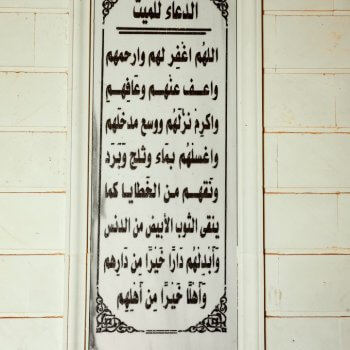 الدعاء للميت
اللهم اغفر لهم وارحمهم
واعف عنهم وعافهم
واكرم نزلهم ووسع مدخلهم
واغسلهم بماء وثلج وبرد
ونقهم من الخطايا كما
ينقى الثوب الأبيض من الدنس
وأبدلهم دارًا خيرًا من دارهم
وأهلًا خيرًا من أهلهم